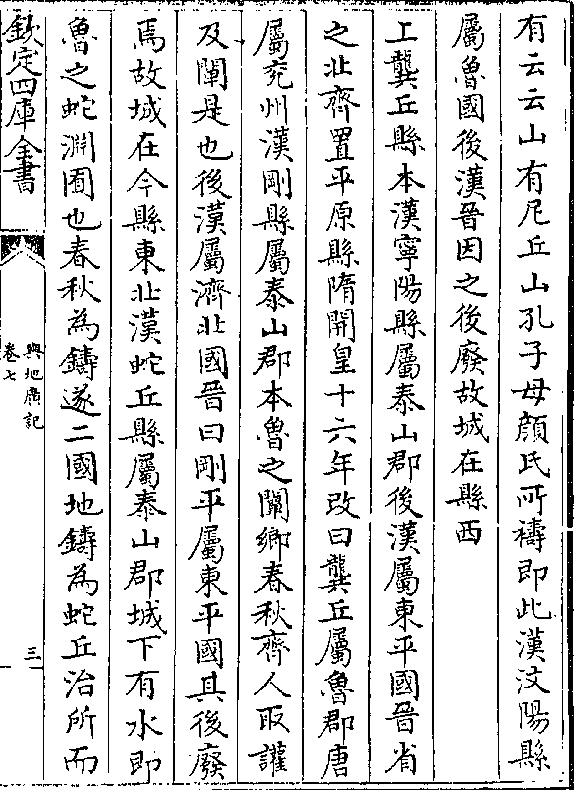 有云云山有尼丘山孔子母顔氏所禱即此漢汶陽縣
屬魯國後漢晉因之後廢故城在縣西
上龔丘縣本漢寧陽縣屬泰山郡後漢屬東平國晉省
之北齊置平原縣隋開皇十六年改曰龔丘屬魯郡唐
屬兖州漢剛縣屬泰山郡本魯之闡鄉春秋齊人取讙
及闡是也後漢屬濟北國晉曰剛平屬東平國其後廢
焉故城在今縣東北漢蛇丘縣屬泰山郡城下有水即
魯之蛇淵囿也春秋為鑄遂二國地鑄為蛇丘治所而
欽定四庫全書
輿地廣記
卷七
三